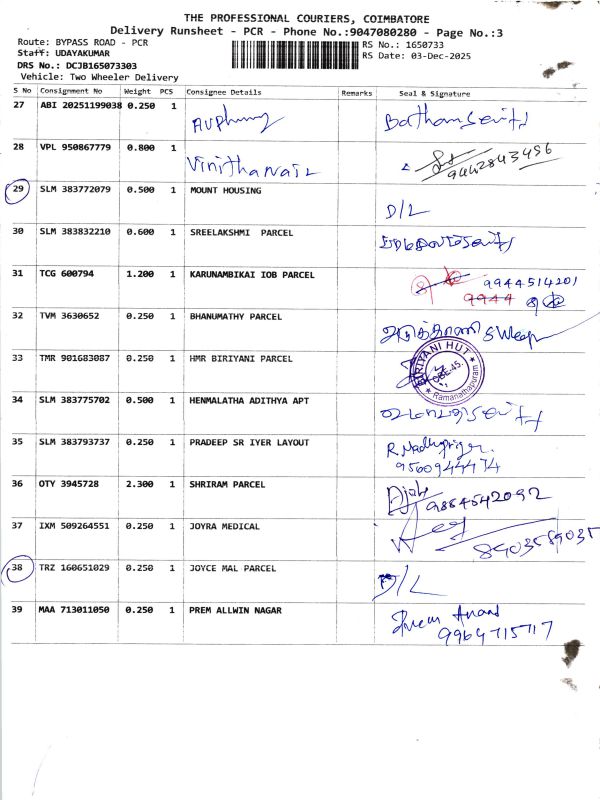 THE PROFESSIONAL COURIERS, COIMBATORE
Delivery Runsheet - PCR - Phone No.:9047080280 - Page No.:3
Route: BYPASS ROAD - PCR
Staff: UDAYAKUMAR
DRS No.: DCJB165073303
Vehicle: Two Wheeler Delivery
RS No.: 1650733
RS Date: 03-Dec-2025
S No Consignment No Weight PCS Consignee Details Remarks Seal & Signature
27 ABI 20251199038 0.250 1
28 VPL 950867779 0.800 1 Vinitha Nair 9442843496
29 SLM 383772079 0.500 1 MOUNT HOUSING D/L
30 SLM 383832210 0.600 1 SREELAKSHMI PARCEL
31 TCG 600794 1.200 1 KARUNAMBIKAI IOB PARCEL 9944514201
9944
32 TVM 3630652 0.250 1 BHANUMATHY PARCEL
33 TMR 901683087 0.250 1 HMR BIRIYANI PARCEL BIRIYANI HUT Ramanathapuram
34 SLM 383775702 0.500 1 HENMALATHA ADITHYA APT
35 SLM 383793737 0.250 1 PRADEEP SR IYER LAYOUT
9560944474
36 OTY 3945728 2.300 1 SHRIRAM PARCEL 9884542092
37 IXM 509264551 0.250 1 JOYRA MEDICAL 8903589035
38 TRZ 160651029 0.250 1 JOYCE MAL PARCEL D/L
39 MAA 713011050 0.250 1 PREM ALLWIN NAGAR Prem Anand
9964715717